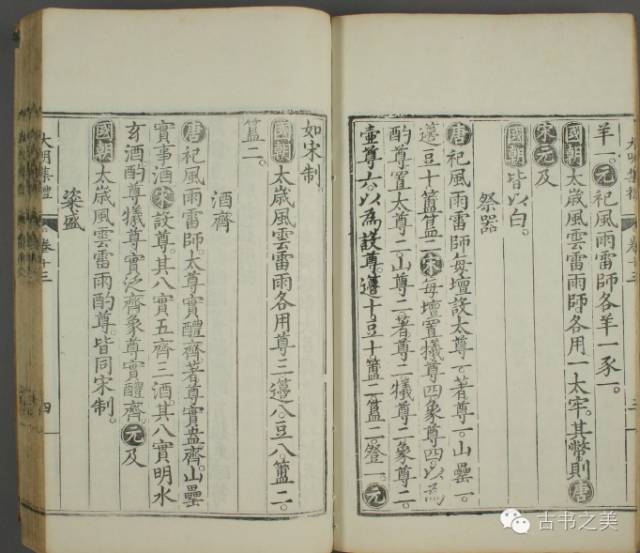 羊一。元祀風雨雷師各羊一豕一。
國朝太歲風雲雷雨師各用一太牢。其幣則唐
宋元及
國朝皆以白。
祭器
唐祀風雨雷師每壇設太尊一。著尊一。山罍一。
籩豆十簠簋二。宋每壇置犧尊四象尊四以為
酌尊置太尊二。山尊二。著尊二犧尊二象尊二。
壷尊六。以為設尊。籩十豆十簠二簋二。登一。元
如宋制。
國朝太歲風雲雷雨各用尊三籩八豆八簠二。
簋二。
酒齊
唐祀風雨雷師。太尊實醴齊。著尊實盎齊。山罍
實事酒宋設尊。其八實五齊三酒。其八實明水
玄酒。酌尊犧尊實泛齊象尊實醴齊。元及
國朝太歲風雲雷雨酌尊。皆同宋制。
粢盛
大明集禮
卷十三
四
古书之美